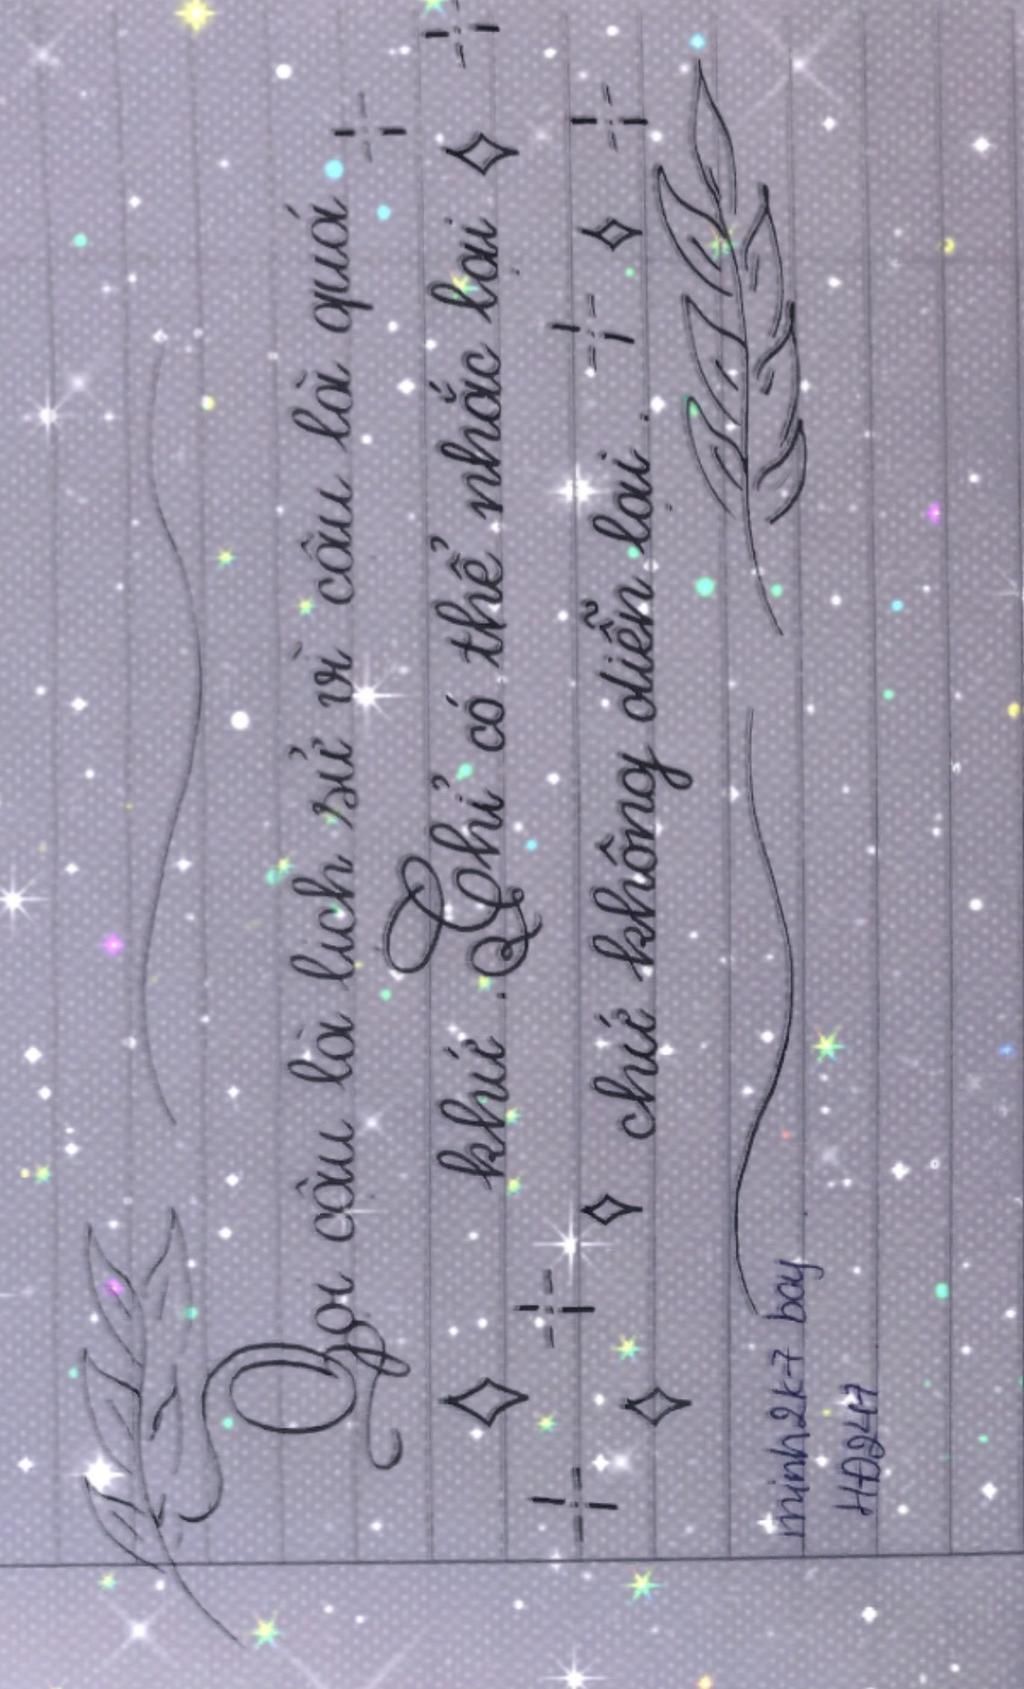 Gọi câu là lịch sử vì câu là quá
khứ. Chỉ có thể nhắc lại
chứ không diễn lại.
minh2k7 boy
HĐ247